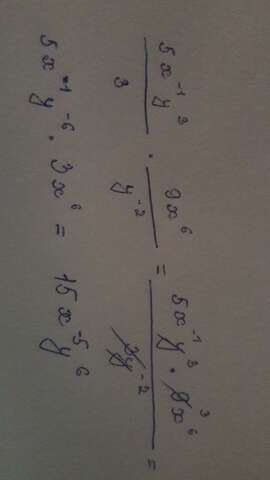 \frac{5x^{-1}y^{3}}{3} \cdot \frac{9x^{6}}{y^{-2}} = \frac{5x^{-1}y^{3} \cdot \cancel{9}^{3}x^{6}}{\cancel{3}y^{-2}} =
5x^{-1}y^{-6} \cdot 3x^{6} = 15x^{-5}y^{6}